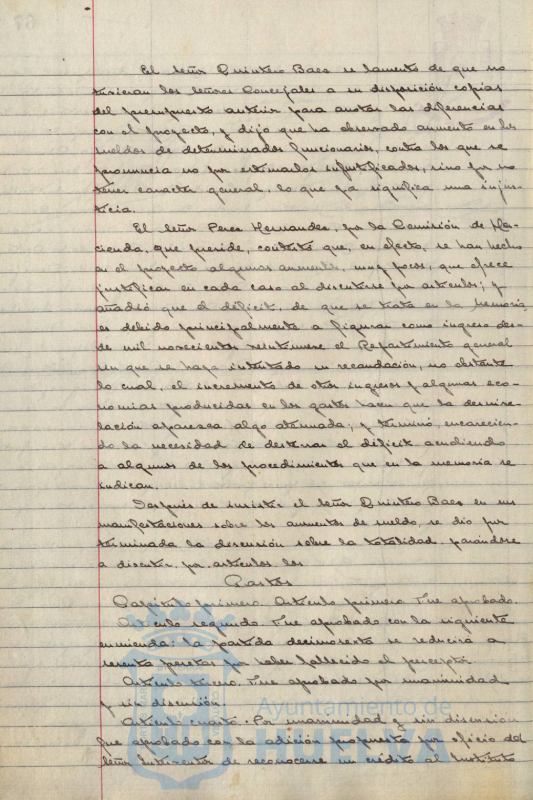 El Señor Quintero Baez se lamentó de que no
tuvieran los Señores Concejales a su disposición copias
del presupuesto anterior para anotar las diferencias
con el proyecto, y dijo que ha observado aumento en los
sueldos de determinados funcionarios, contra los que se
pronuncia no por estimarlos injustificados, sino por no
tener caracter general, lo que ya significa una injus-
ticia.
El Señor Perez Hernandez, por la Comisión de Ha-
cienda, que preside, contestó que, en efecto, se han hecho
en el proyecto algunos aumentos, muy pocos, que ofrece
justificar en cada caso al discutirse por articulos; y
añadió que el déficit, de que se trata en la Memoria,
es debido principalmente a figurar como ingreso des-
de mil novecientos veintinueve el Repartimiento general
sin que se haya intentado su recaudación, no obstante
lo cual, el incremento de otros ingresos y algunas eco-
nomias producidas en los gastos hacen que la desnive-
lación aparezca algo atenuada; y terminó encarecien-
do la necesidad de desterrar el déficit acudiendo
a algunos de los procedimientos que en la memoria se
indican.
Después de insistir el Señor Quintero Baez en sus
manifestaciones sobre los aumentos de sueldo, se dió por
terminada la discusión sobre la totalidad, pasándose
a discutir, por articulos los
Gastos
Capitulo primero. Articulo primero. Fue aprobado.
Articulo segundo. Fue aprobado con la siguiente
enmienda: la partida decimosexta se reducirá a
sesenta pesetas por haber fallecido el perceptor.
Articulo tercero. Fue aprobado por unanimidad
y sin discusión.
Articulo cuarto. Por unanimidad y sin discusión
fue aprobado con la adición propuesta por oficio del
Señor Interventor de reconocerse un crédito al Instituto
Ayuntamiento de
HUELVA